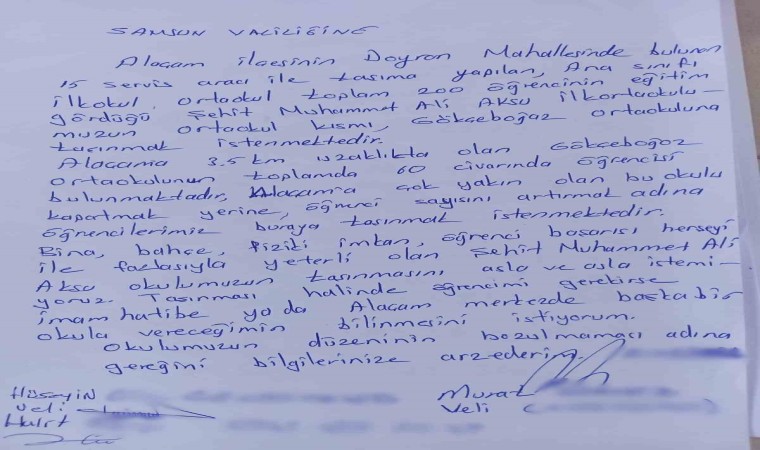 SAMSUN VALİLİĞİNE
Alaçam ilçesinin Doyran Mahallesinde bulunan
15 servis aracı ile taşıma yapılan, Ana sınıfı
ilkokul ortaokul toplam 200 öğrencinin eğitim
gördüğü Şehit Muhammet Ali Aksu ilkortaokulu-
muzun ortaokul kısmı, Gökçeboğaz ortaokuluna
taşınmak istenmektedir.
Alaçama 3.5 km uzaklıkta olan Gökçeboğaz
ortaokulunun toplamda 60 civarında öğrencisi
bulunmaktadır, Alaçam'a çok yakın olan bu okulu
kapatmak yerine, öğrenci sayısını artırmak adına
öğrencilerimiz buraya taşınmak istenmektedir.
Bina, bahçe, fiziki imkan, öğrenci başarısı herşeyi
ile fazlasıyla yeterli olan Şehit Muhammet Ali
Aksu okulumuzun taşınmasını asla ve asla istemi-
yoruz. Taşınması halinde öğrencimi gerekirse
imam hatibe ya da Alaçam merkezde başka bir
okula vereceğimin bilinmesini istiyorum.
Okulumuzun düzeninin bozulmaması adına
gereğini bilgilerinize arz ederim.
Hüseyin
Veli
Halit
Murat
Veli